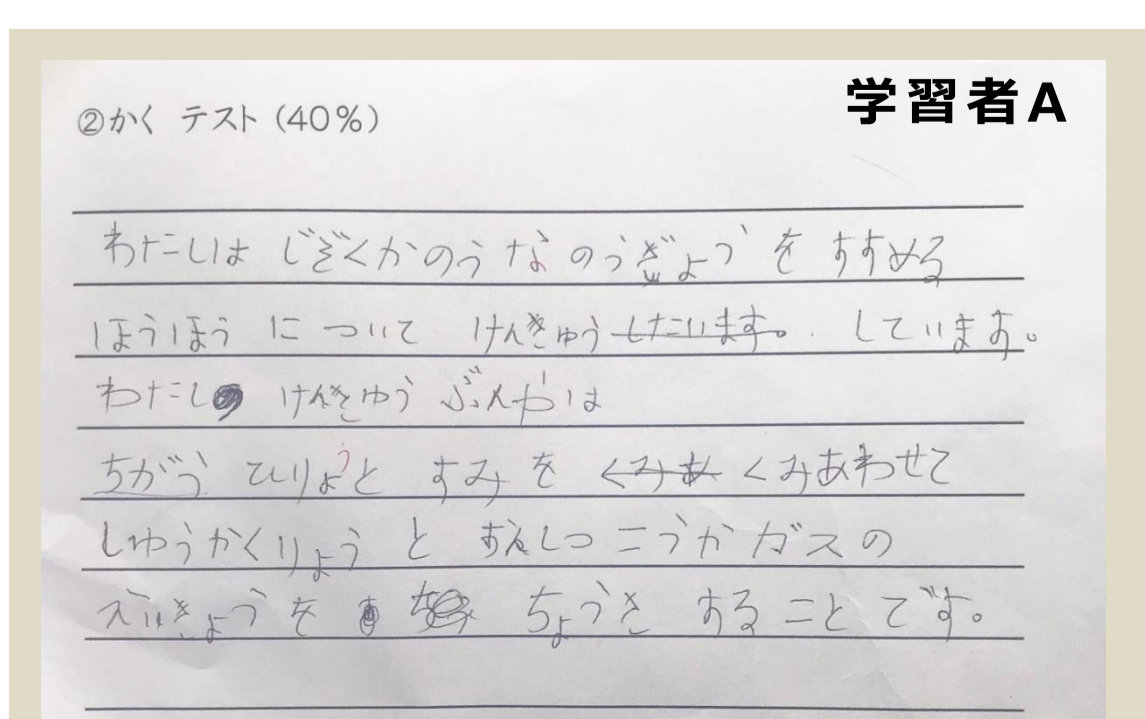 学習者A
②かく テスト (40%)
わたしは じぞくかのうな のうぎょうを すすめる
ほうほう について けんきゅう したいます。 しています。
わたしの けんきゅう ぶんやは
ちがう ひりょうと すみを くみあ くみあわせて
しゅうかくりょう と おんしつ こうかガスの
えいきょうを ちょうさ することです。